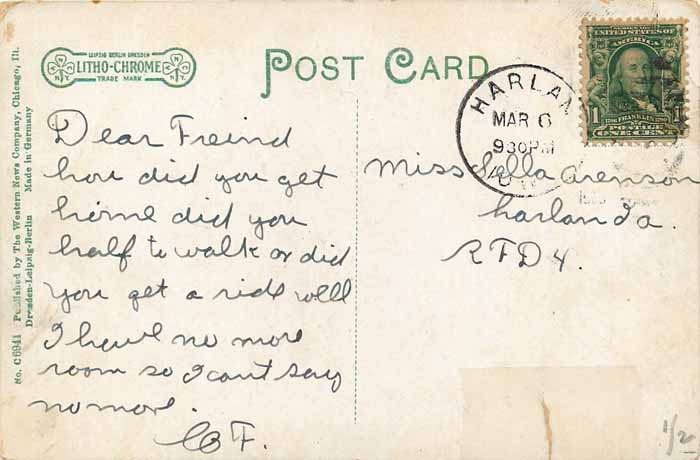 LEIPZIG BERLIN DRESDEN
LITHO-CHROME
TRADE MARK
POST CARD
No. C6941 Published by The Western News Company, Chicago, Ill.
Dresden-Leipzig-Berlin Made in Germany
Dear Freind
how did you get
home did you
half to walk or did
you get a ride well
I have no more
room so I cant say
no more.
F.
HARLAN
MAR 6
930PM
SERIES 1902
UNITED STATES OF
AMERICA
1 1
1706 FRANKLIN 1790
POSTAGE
ONE CENT
Miss Sella Arenson
harlan Ia.
RFD 4.
1/2